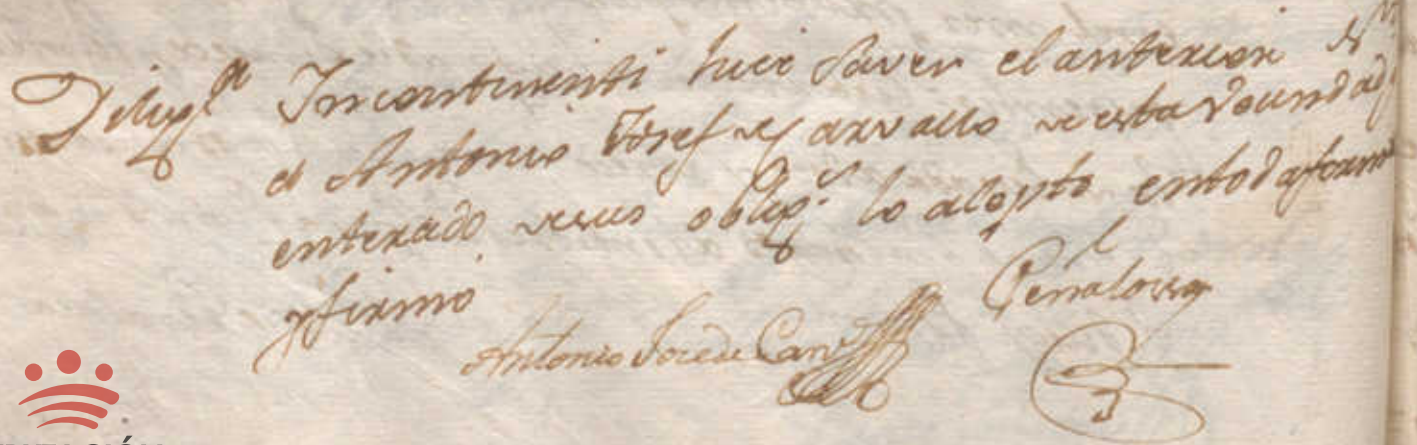 Dilig.ª Incontinenti hice saver el anterior
a Antonio Josef de Carvallo de esta Vecindad
enterado de sus oblig.s lo acepto en toda forma
y firmo
Peñalossa
Antonio Jose de Carv